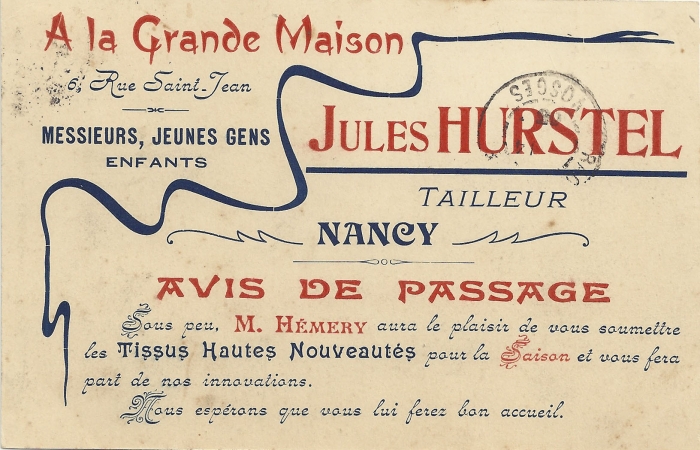 A la Grande Maison
6, Rue Saint-Jean
MESSIEURS, JEUNES GENS
ENFANTS
JULES HURSTEL
TAILLEUR
NANCY
AVIS DE PASSAGE
Sous peu, M. HÉMERY aura le plaisir de vous soumettre
les Tissus Hautes Nouveautés pour la Saison et vous fera
part de nos innovations.
Nous espérons que vous lui ferez bon accueil.
VOSGES